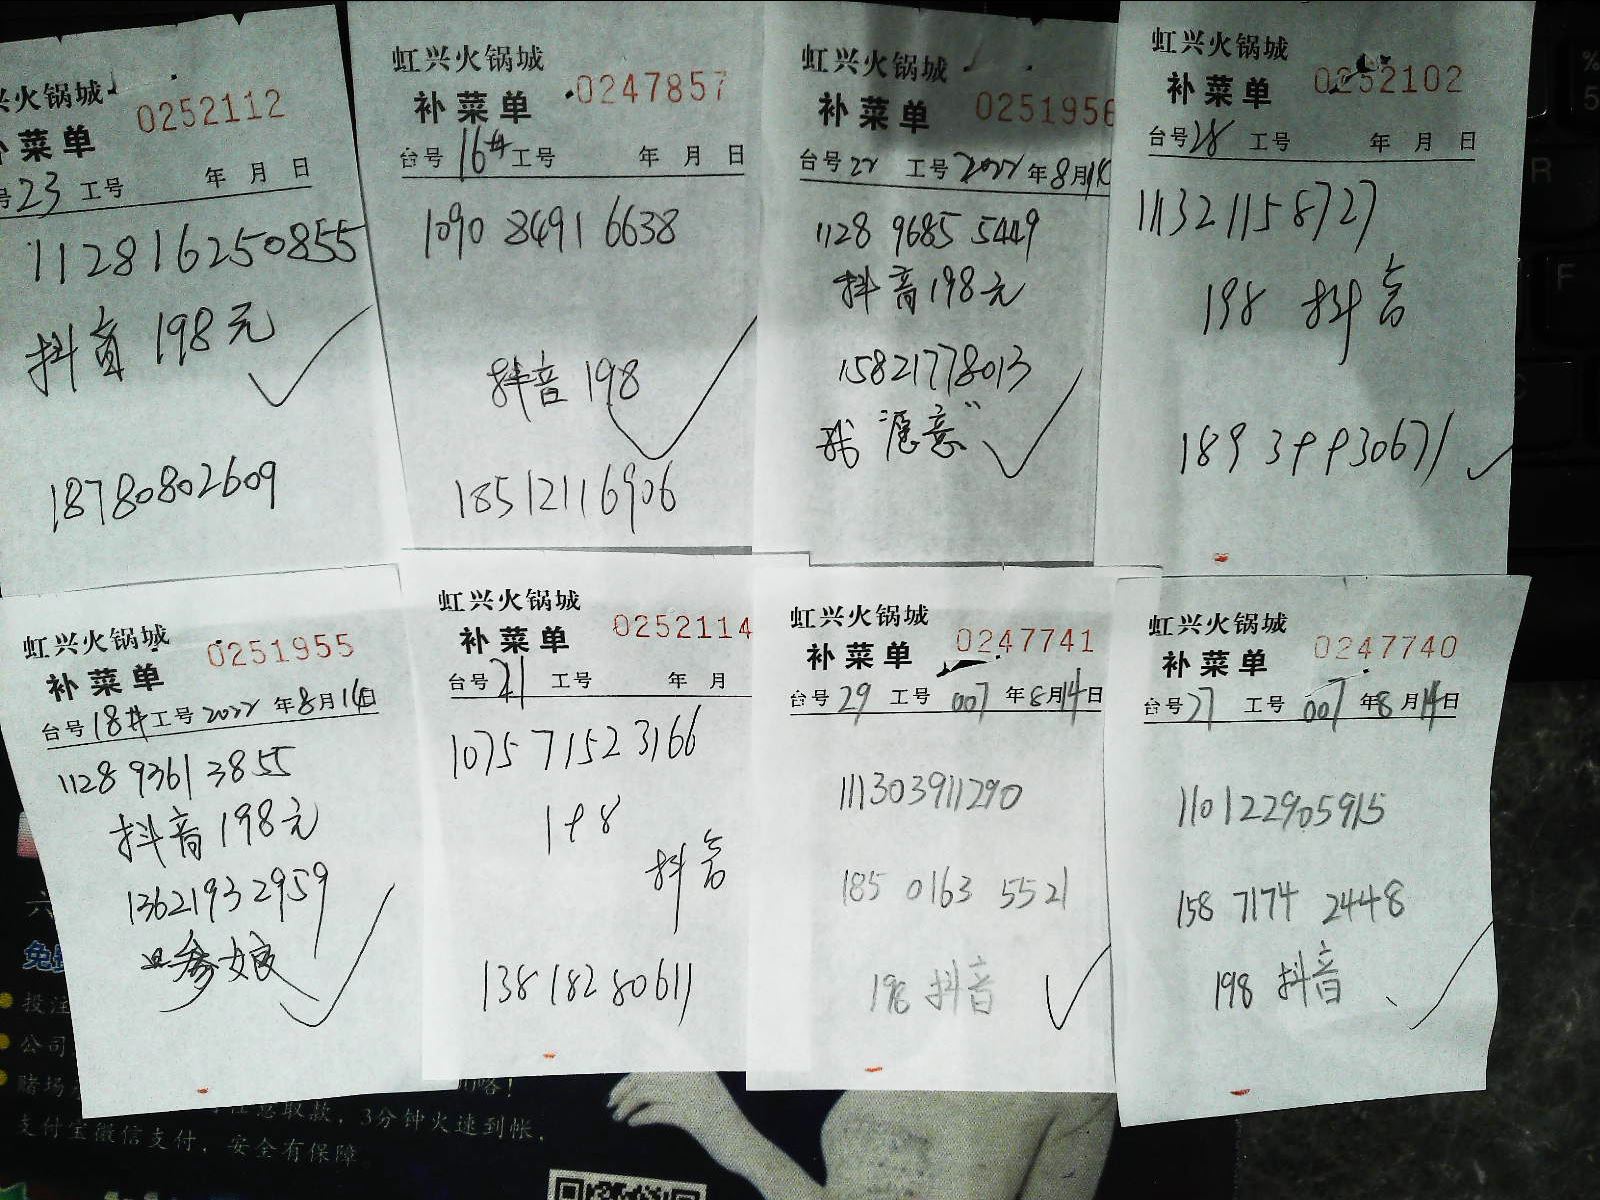 兴火锅城
0252112
菜单
号23 工号 年 月 日
112816250855
抖音 198元
18780802609
虹兴火锅城
0247857
补菜单
台号16# 工号 年 月 日
1090 8491 6638
抖音 198
18512116906
虹兴火锅城
0251956
补菜单
台号22 工号2022年8月14
1128 9685 5449
抖音198元
15821778013
愿意”
虹兴火锅城
0252102
补菜单
台号28 工号 年 月 日
111321158727
198 抖音
18939930671
虹兴火锅城
0251955
补菜单
台号18#工号2022年8月14日
1128 9361 3855
抖音198元
13621932959
虹兴火锅城
0252114
补菜单
台号21 工号 年 月
1075 7152 3166
198
抖音
13818280611
虹兴火锅城
0247741
补菜单
台号29 工号 007 年8月14日
111303911290
185 0163 5521
198 抖音
虹兴火锅城
0247740
补菜单
台号27 工号 007 年8月14日
110122905915
158 7174 2448
198 抖音
免
投注
公司
赌场
略!
意取款,3分钟火速到帐,
支付宝微信支付,安全有保障